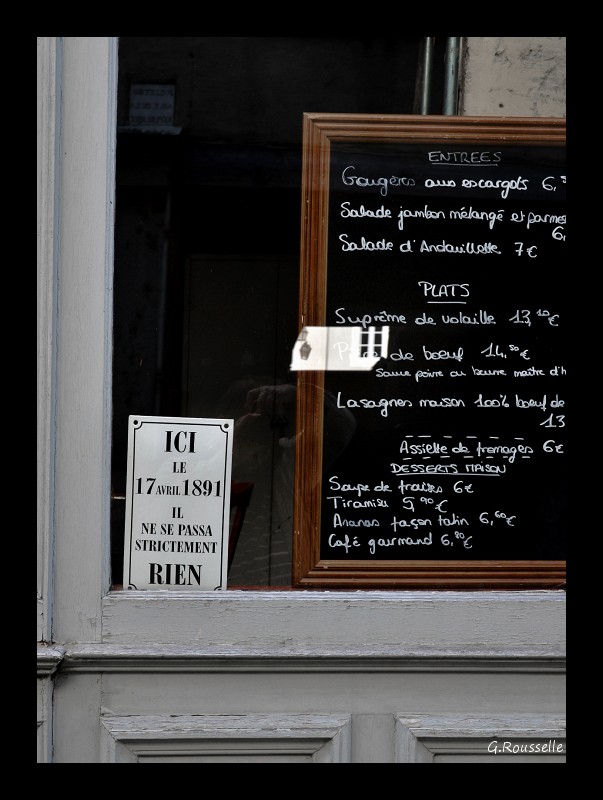 ENTREES
Gougères aux escargots 6,
Salade jambon mélangé et parmes
6,
Salade d'Andouillette 7€
PLATS
Suprême de volaille 13,10€
de boeuf 14,50€
Sauce poivre ou beurre maître d'h
Lasagnes maison 100% boeuf de
13
Assiette de fromages 6€
DESSERTS MAISON
Soupe de fraises 6€
Tiramisu 5,90€
Ananas façon tatin 6,60€
Café gourmand 6,80€
ICI
LE
17 AVRIL 1891
IL
NE SE PASSA
STRICTEMENT
RIEN
G.Rousselle